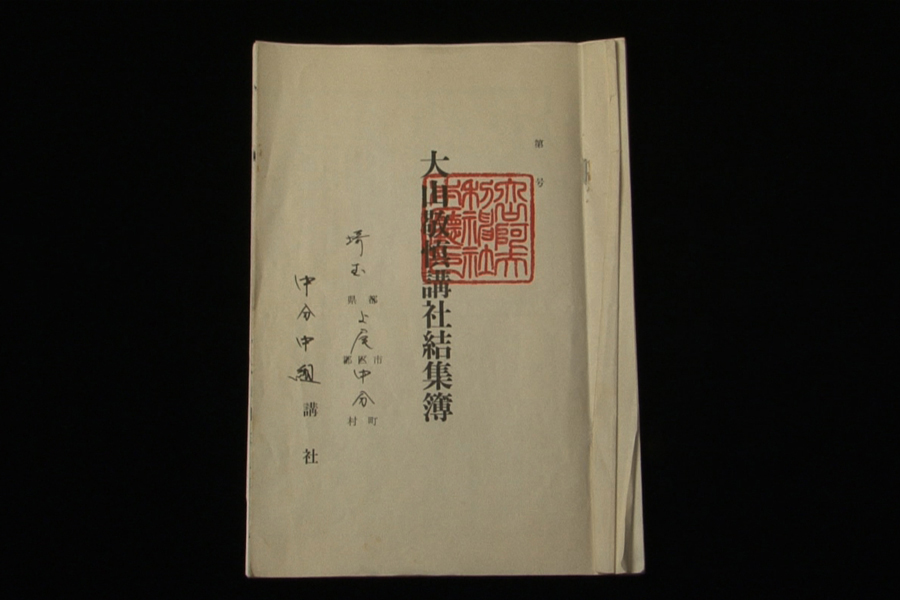 第 号
大山阿夫利神社本廳之印
大山敬慎講社結集簿
埼玉 都県 上尾 市区郡 中分 町村
中分中組講社